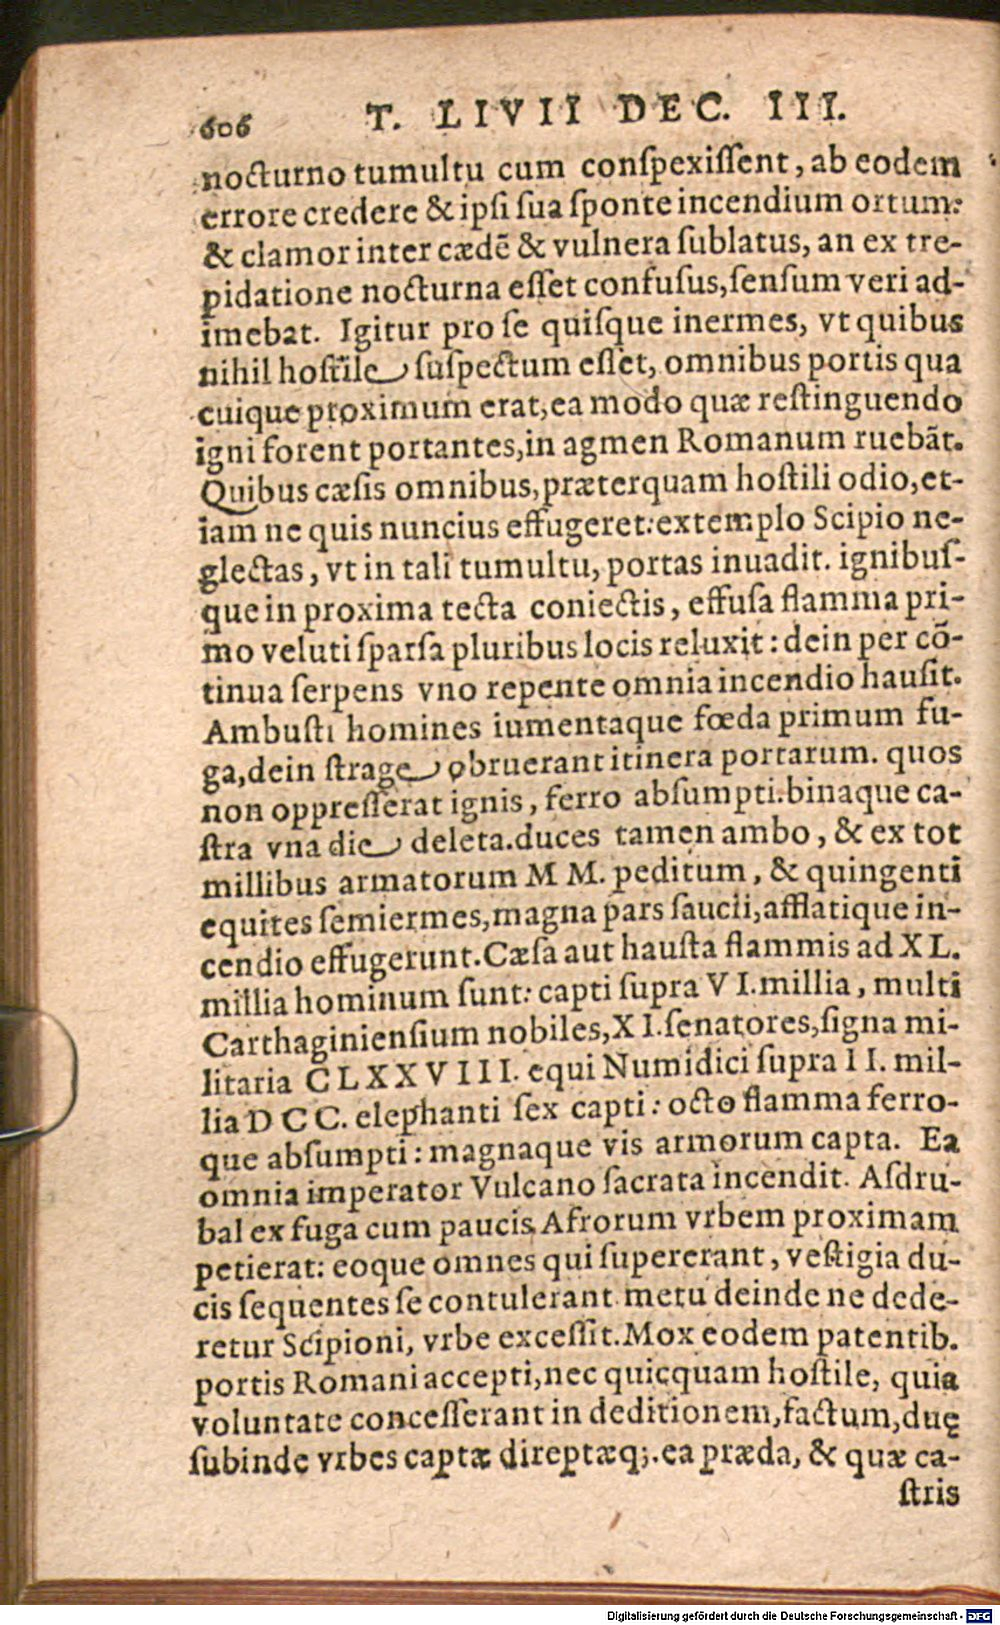 606 T. LIVII DEC. III.
nocturno tumultu cum conſpexiſſent, ab eodem
errore credere & ipſi ſua ſponte incendium ortum:
& clamor inter cædẽ & vulnera ſublatus, an ex tre-
pidatione nocturna eſſet confuſus, ſenſum veri ad-
imebat. Igitur pro ſe quiſque inermes, vt quibus
nihil hoſtile ſuſpectum eſſet, omnibus portis qua
cuique proximum erat, ea modo quæ reſtinguendo
igni forent portantes, in agmen Romanum ruebãt.
Quibus cæſis omnibus, præterquam hoſtili odio, et-
iam ne quis nuncius effugeret: extemplo Scipio ne-
glectas, vt in tali tumultu, portas inuadit. ignibuſ-
que in proxima tecta coniectis, effuſa flamma pri-
mo veluti ſparſa pluribus locis reluxit: dein per cõ-
tinua ſerpens vno repente omnia incendio hauſit.
Ambuſti homines iumentaque fœda primum fu-
ga, dein ſtrage obruerant itinera portarum. quos
non oppreſſerat ignis, ferro abſumpti. binaque ca-
ſtra vna die deleta. duces tamen ambo, & ex tot
millibus armatorum M M. peditum, & quingenti
equites ſemiermes, magna pars ſaucii, afflatique in-
cendio effugerunt. Cæſa aut hauſta flammis ad XL.
millia hominum ſunt: capti ſupra VI. millia, multi
Carthaginienſium nobiles, XI. ſenatores, ſigna mi-
litaria CLXXVIII. equi Numidici ſupra II. mil-
lia DCC. elephanti ſex capti: octo flamma ferro-
que abſumpti: magnaque vis armorum capta. Ea
omnia imperator Vulcano ſacrata incendit. Aſdru-
bal ex fuga cum paucis Afrorum vrbem proximam
petierat: eoque omnes qui ſupererant, veſtigia du-
cis ſequentes ſe contulerant. metu deinde ne dede-
retur Scipioni, vrbe exceſſit. Mox eodem patentib.
portis Romani accepti, nec quicquam hoſtile, quia
voluntate conceſſerant in deditionem, factum, duę
ſubinde vrbes captæ direptæq;. ea præda, & quæ ca-
ſtris
Digitalisierung gefördert durch die Deutsche Forschungsgemeinschaft - DFG